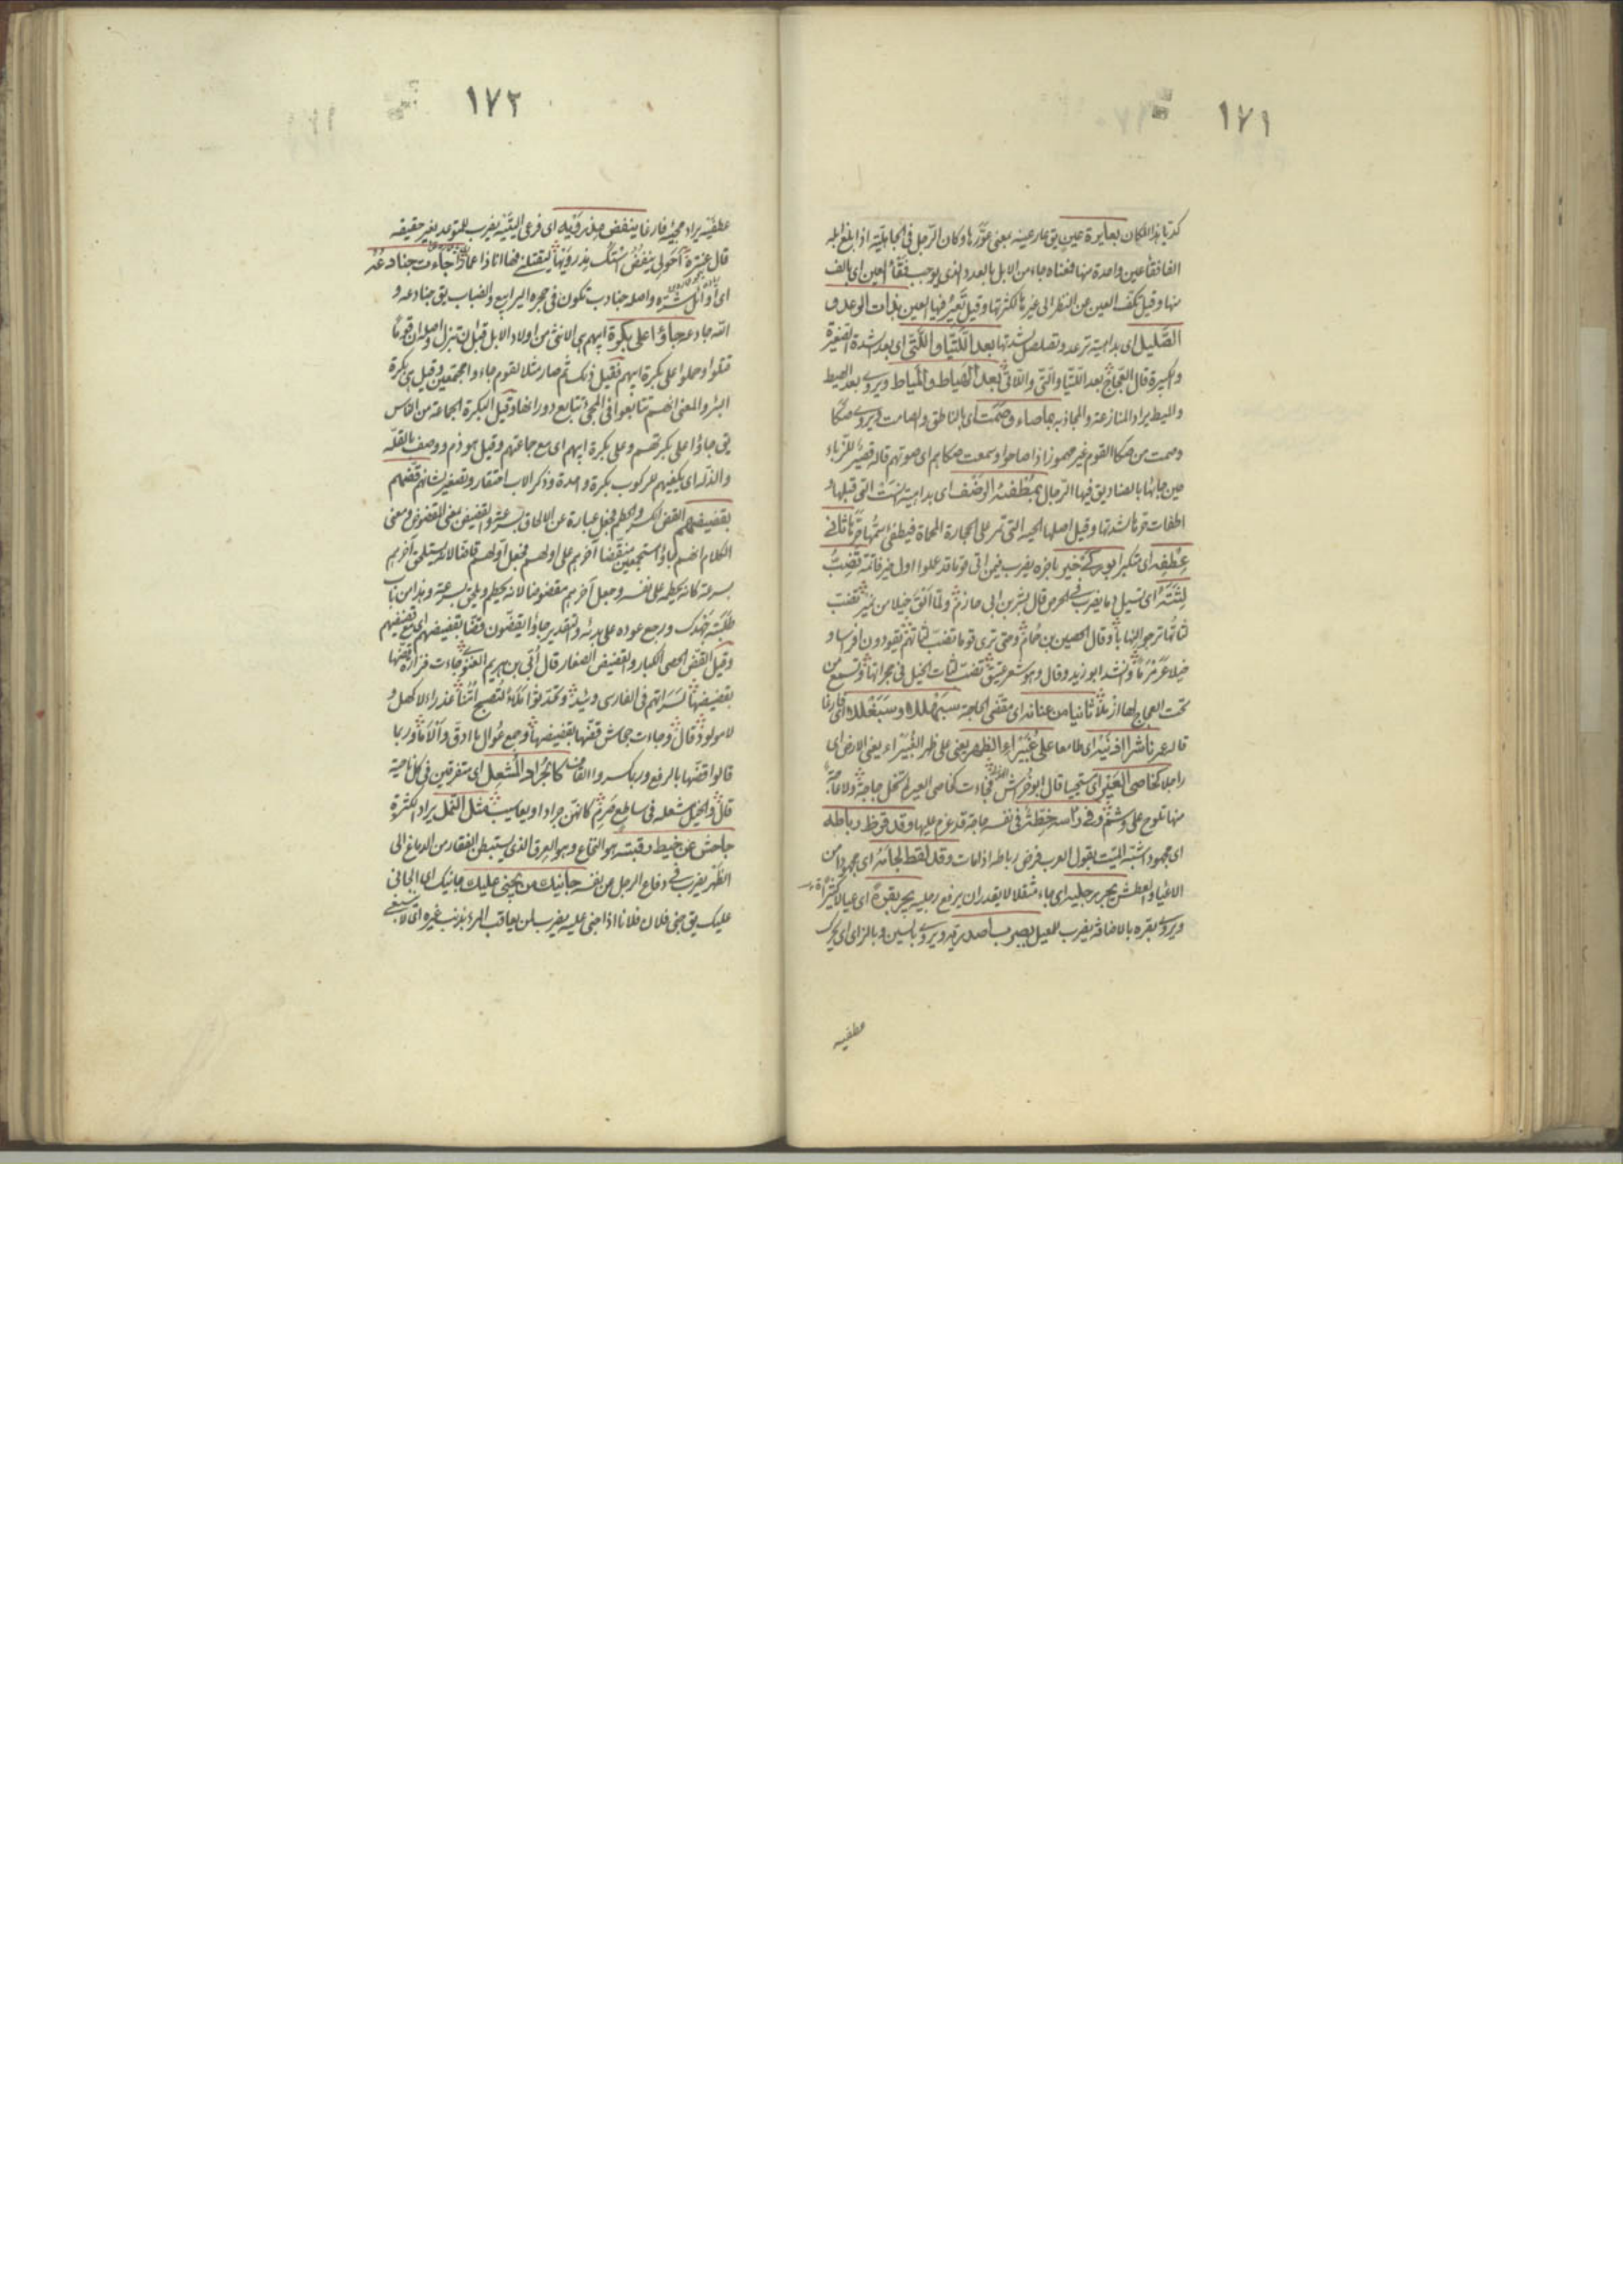 ١٧١
كذبا هذا المكان بعايرة عين يق عار عينه بمعنى عوّرها وكان الرّجل في الجاهليّة اذا بلغ ابله
الفا فقأ عين واحدة منها فمعناه جاء من الابل بالعدد الذي يوجب فقأ العين اى بالف
منها وقيل تكفّ العين عن النظر الى غيرها لكثرتها وقيل تعير فيها العين بذات الرعد و
الصّليل اى بداهية ترعد وتصلصل لشدتها بعد اللّتيّا والّتي اى بعد شدة الصغيرة
والكبيرة قال العجّاج بعد اللّتيّا والّتي واللّاتي بعد الهياط والمياط ويروى بعد الهيط
والميط يراد المنازعة والمجاذبة بما صاء وصمت اى بالناطق والصامت ويروى صكّا
وصمت من صكا القوم غير مهموز اذا صاحوا وسمعت صكاهم اى صوتهم قاله قصير للزّباء
حين جاءها بالصناديق فيها الرّجال بمطفئة الرضف اى بداهية نسّت التي قبلها و
اطفات حرها لشدتها وقيل اصلها الحية التي تمر على الحجارة المحماة فيطفئ سمّها حرّها ثاني
عطفه اى متكبرا يضرب فيمن اتى قوما قد عملوا اول خير فاتته تضبّ
لثته اى تسيل دما يضرب في الحرص قال بشر بن ابي حازم ولمّا الق خيلا من نمير تضبّ
لثاتها ترجو النهابا وقال الحصين بن حمام وحتى ترى قوما تضبّ لثاتهم يقودون افراسا و
خيلا عرمرما وانشد ابو زيد وقال وهو شعر عتيق تضبّ لثات الخيل في حجراتها وتسمع من
تحت العجاج لها ازملا ثانيا من عنانه اى مقضى الحاجة سبهللا وسبغللا اى فارغا
قاله عمر ناشرا اذنيه اى طامعا على غبيراء الظهر يعني على ظهر الغبيراء يعني الارض اى
راجلا كخاصى العير اى مستحييا قال ابو خراش فجاءت كخاصى العير لم تحل حاجة ولا عاجة
منها تلوح على وشم وفي راسه خطّة في نفسه حاجة قد عزم عليها وقد قرظ رباطه
اى مجهودا شبّه الميت بقول العرب قرض رباطه اذا مات وقد لفظ لجامه اى مجهودا من
الاعياء والعطش يجر برجليه اى جاء مثقلا لا يقدر ان يرفع رجليه يجر بقرة اى عيالا كثيرة
ويروى بقره بالاضافة يضرب للمعيل يضرب اصدريه ويروى بالسين وبالزاى اى يحرك
عطفيه
١٧٢
عطفيه يراد مجيئه فارغا ينفض مذرويه اى فرعى اليتيه يضرب للمتوعد بغير حقيقة
قال عنترة احولى ينفض استك مذرويها لتقتلني فها انا ذا عمارا جاءت جنادعه
اى اوائل شرّه واصله جنادب تكون في جحرة اليرابيع والضباب يق جنادعه و
اللّه جادعه جاؤا على بكرة ابيهم هى الانثى من اولاد الابل قبل ان تبزل اصله ان قوما
قتلوا وحملوا على بكرة ابيهم فقيل ذلك ثم صار مثلا لقوم جاءوا مجتمعين وقيل هى بكرة
البئر والمعنى انهم تتابعوا في المجئ تتابع دورانها وقيل البكرة الجماعة من النّاس
يق جاؤا على بكرتهم وعلى بكرة ابيهم اى مع جماعتهم وقيل هو ذم ووصف بالقلّة
والذلّ اى يكفيهم للركوب بكرة واحدة وذكر الاب احتقار وتصغير لشانهم قضّهم
بقضيضهم القض الكسر والحطم فجعل عبارة عن الالحاق بسرعة والقضيض بمعنى المقضوض ومعنى
الكلام انهم جاؤا مستجمعين منقضا آخرهم على اولهم فجعل اولهم قاضّا لانه يستلحق آخرهم
بسرعة كانه يحطمه على نفسه وجعل آخرهم مقضوضا لانه يحطم ويلحق بسرعة وهذا من باب
طلبته جهدك ورجع عوده على بدئه والتقدير جاؤا يقضّون قضّا بقضيضهم اى مع قضيضهم
وقيل القضّ الحصى الكبار والقضيض الصغار قال أبيّ بن هريم الغنوى جاءت فزارة قضّها
قالوا قضّها بالرفع كالجراد المشعل اى متفرقين في كل ناحية
قال والخيل مشعلة في ساطع ضرم كانهن جراد او يعاسيب مثل النّمل يراد الكثرة
جاحش عن خيط رقبته هو النخاع وهو العرق الذي يستبطن الفقار من الدماغ الى
الظهر يضرب في دفاع الرجل عن نفسه جانيك من يجني عليك جانيك اى الجاني
عليك يق جنى فلان فلانا اذا جنى عليه يضرب لمن يعاقب المرء بذنب غيره اى لا ينبغي